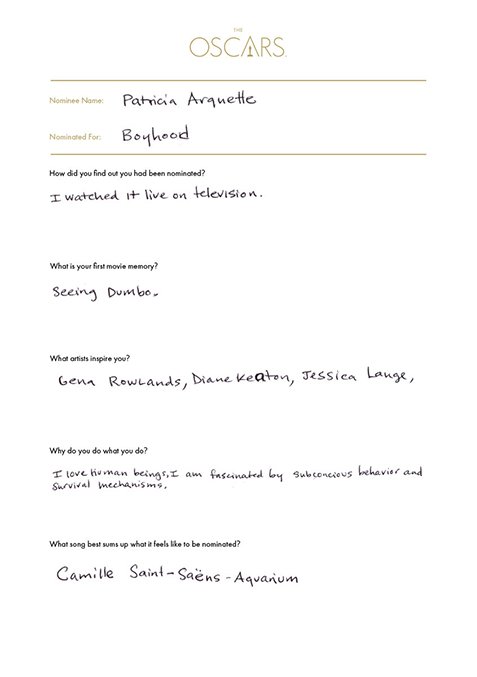 THE
OSCARS
Nominee Name: Patricia Arquette
Nominated For: Boyhood
How did you find out you had been nominated?
I watched it live on television.
What is your first movie memory?
Seeing Dumbo.
What artists inspire you?
Gena Rowlands, Diane Keaton, Jessica Lange,
Why do you do what you do?
I love human beings, I am fascinated by subconcious behavior and
survival mechanisms.
What song best sums up what it feels like to be nominated?
Camille Saint-Saëns - Aquarium